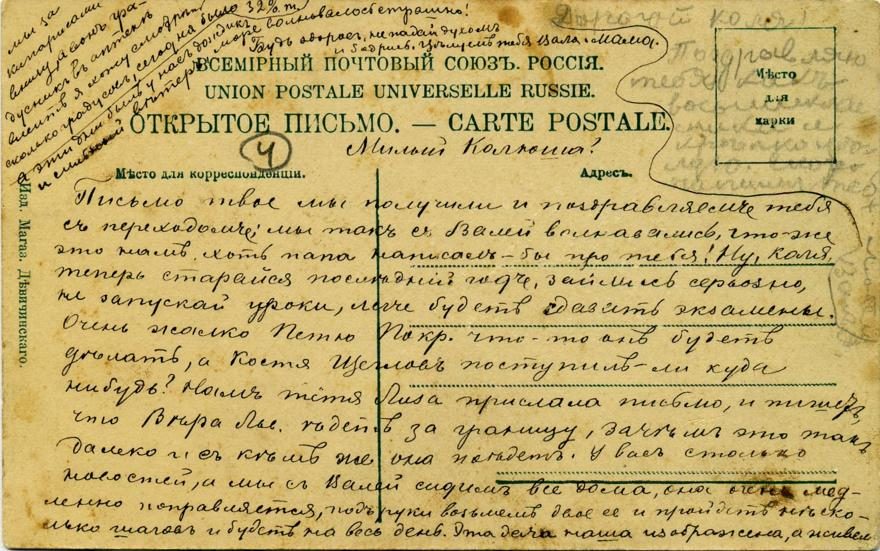 ВСЕМІРНЫЙ ПОЧТОВЫЙ СОЮЗЪ. РОССІЯ.
UNION POSTALE UNIVERSELLE RUSSIE.
ОТКРЫТОЕ ПИСЬМО. — CARTE POSTALE.
Мѣсто
для
марки
4
Мѣсто для корреспонденціи.
Адресъ.
Изд. Магаз. Дѣвичинскаго.
Милый Колюша!
Письмо твое мы получили и поздравляемъ тебя
съ переходомъ; мы такъ съ Валей волновались, что-же
это намъ, хоть папа написалъ-бы про тебя! Ну, Коля,
теперь старайся послѣдній годъ, займись серьозно,
не запускай уроки, легче будетъ сдавать экзамены.
Очень жалко Петю Покр. что-то онъ будетъ
дѣлать, а Костя Щегловъ поступилъ-ли куда
нибудь? Намъ тетя Лиза прислала письмо, и пишетъ,
что Вѣра ѣдетъ за границу, зачѣмъ это такъ
далеко и съ кѣмъ же она поѣдетъ. У васъ столько
новостей, а мы съ Валей сидимъ все дома, она очень мед-
ленно поправляется, подъ руки возьмемъ двое ее и пройдетъ нѣско-
лько шаговъ и будетъ на весь день. Эта дача наша изображена, а живемъ
мы за
кипарисами
внизу, а
въ аптекѣ
я хожу смотрѣть
сколько градусовъ, сегодня было 32% т.
а эти дни были у насъ дожди
и сильный вѣтеръ, море волновалось страшно!
Будь здоровъ, не падай духомъ
и бодрись. Цѣлуемъ тебя Валя и Мама.
Дорогой Коля!
Поздравляю
тебя